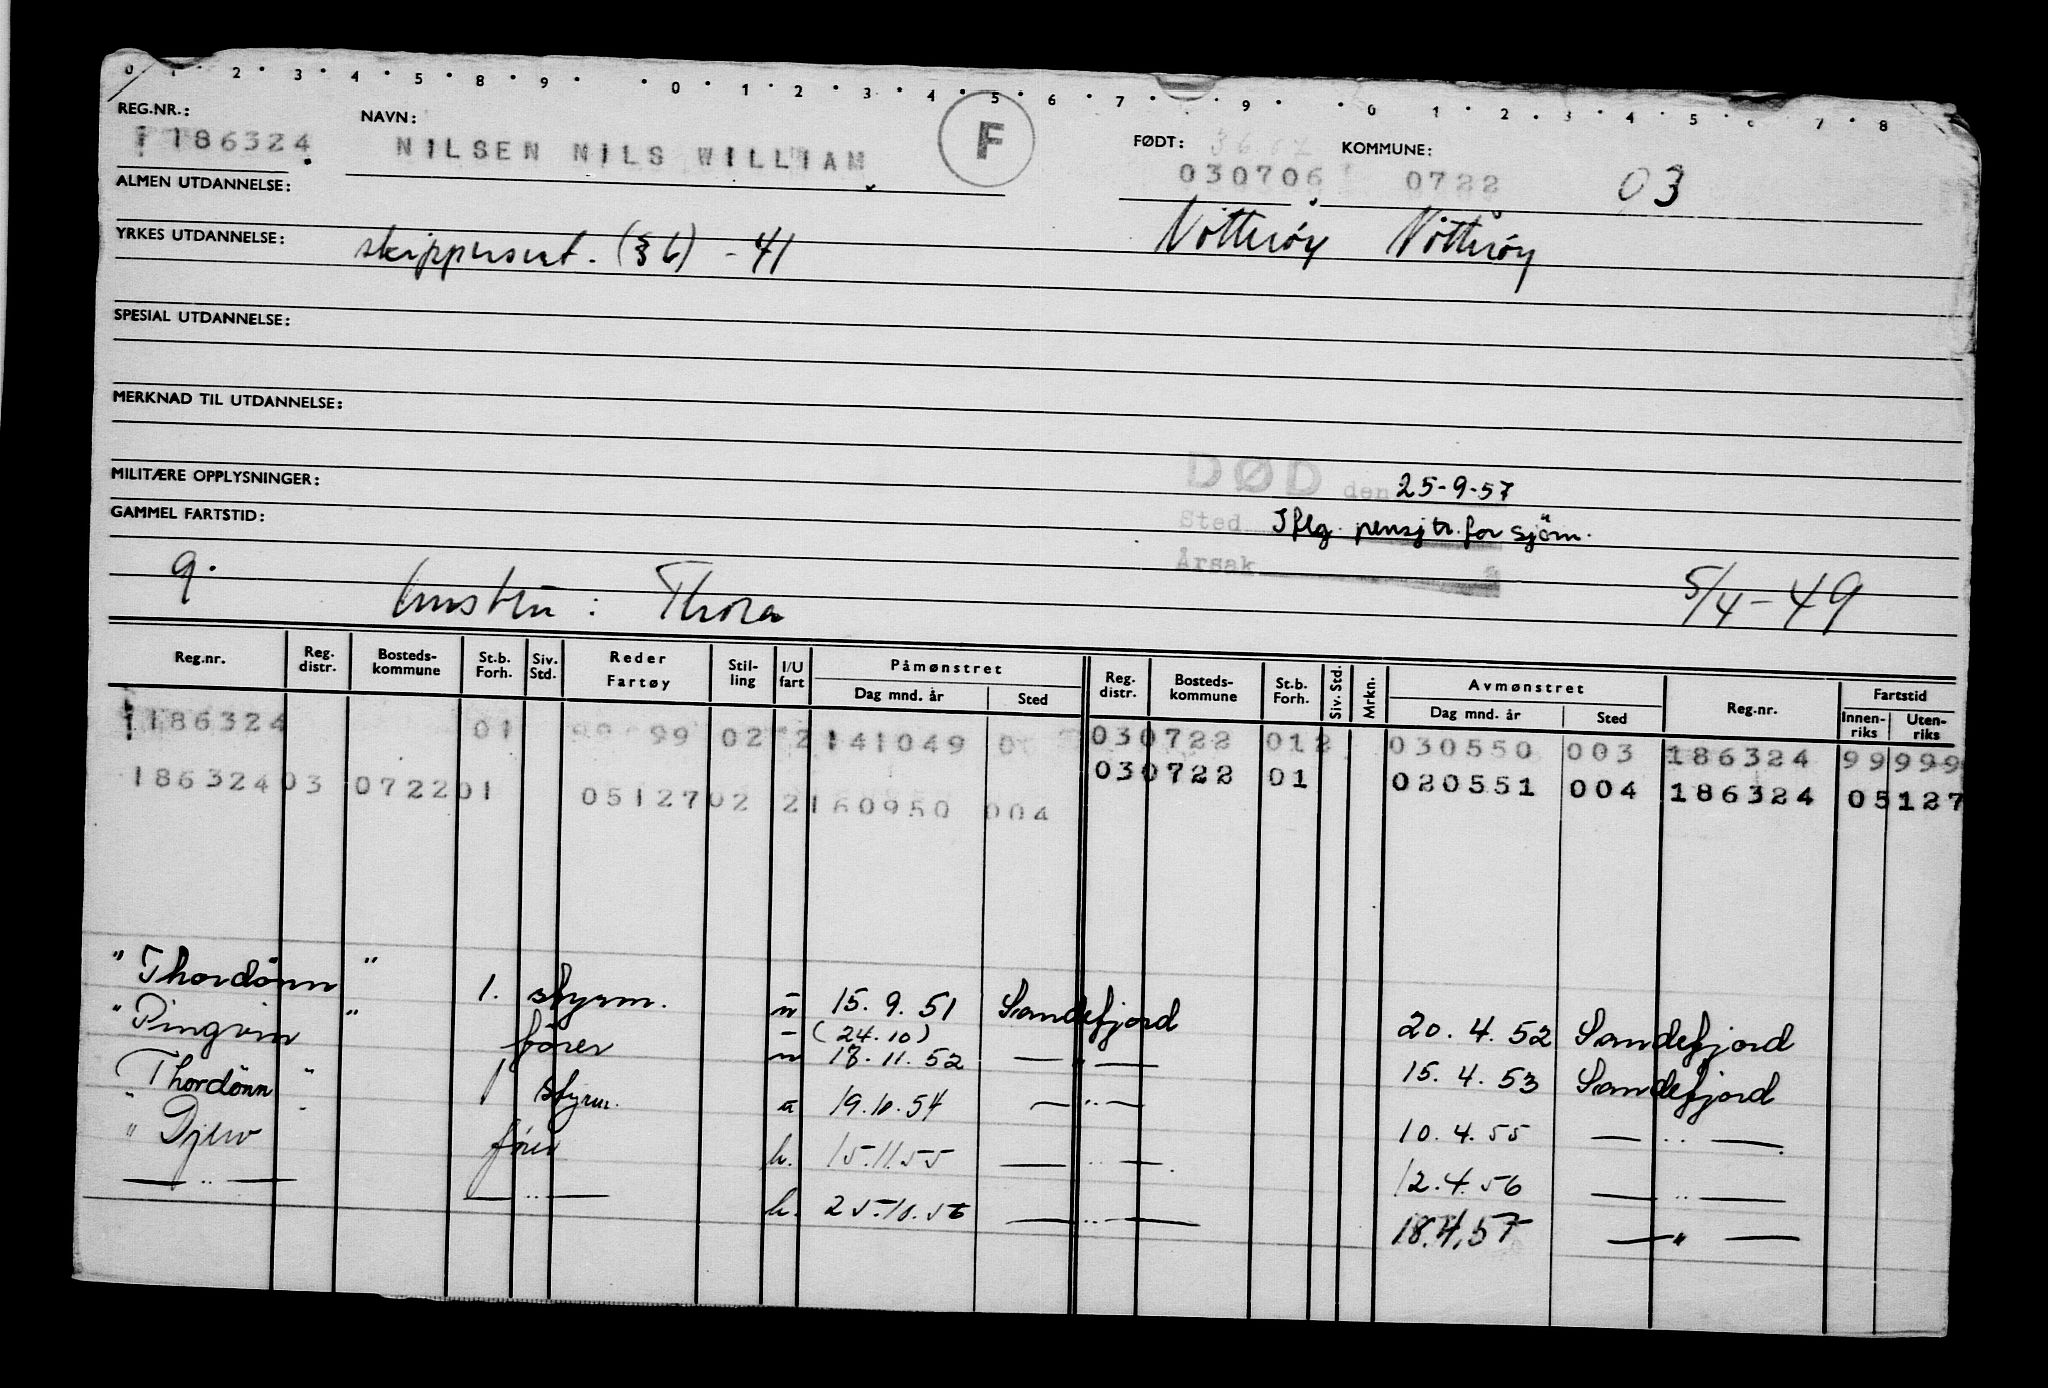 0 1 2 3 4 5 8 9 0 1 2 3 4 5 6 7 9 0 1 2 3 4 5 7 8
REG.NR.: NAVN: F FØDT: KOMMUNE:
186324 NILSEN NILS WILLIAM 030706 0722 03
ALMEN UTDANNELSE:
Nötteröy Nötteröy
YRKES UTDANNELSE: skippersert. (§6) - 41
SPESIAL UTDANNELSE:
MERKNAD TIL UTDANNELSE:
MILITÆRE OPPLYSNINGER: DØD den 25-9-57
GAMMEL FARTSTID: Sted Iflg. pensjtr. for sjöm.
Årsak
9. hustru : Thora 5/4-49
Reg.nr. Reg. distr. Bosteds-kommune St.b. Forh. Siv. Std. Reder Fartøy Stil-ling I/U fart Påmønstret Dag mnd. år Sted Reg. distr. Bosteds-kommune St.b. Forh. Siv. Std. Mrkn. Avmønstret Dag mnd. år Sted Reg.nr. Fartstid Innen-riks Uten-riks
186324 01 99 02 2 141049 030722 012 030550 003 186324 99999
186324 03 0722 01 05127 02 2 160950 004 030722 01 020551 004 186324 05127
" Thordönn " 1. styrm. u 15. 9. 51 Sandefjord 20. 4. 52 Sandefjord
(24.10)
" Pingvin " förer u 18. 11. 52 — " — 15. 4. 53 Sandefjord
" Thordönn " 1 styrm. u 19.10.54 — " — 10. 4. 55 — " —
" Djerv förer h. 15.11.55 — " — 12.4.56 — " —
— " — — " — h. 25.10.56 — " — 18.4.57 — " —